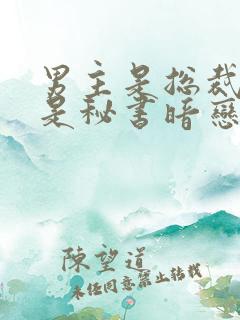 男主是总裁
是秘书暗戀
陳望道
未经同意禁止转载